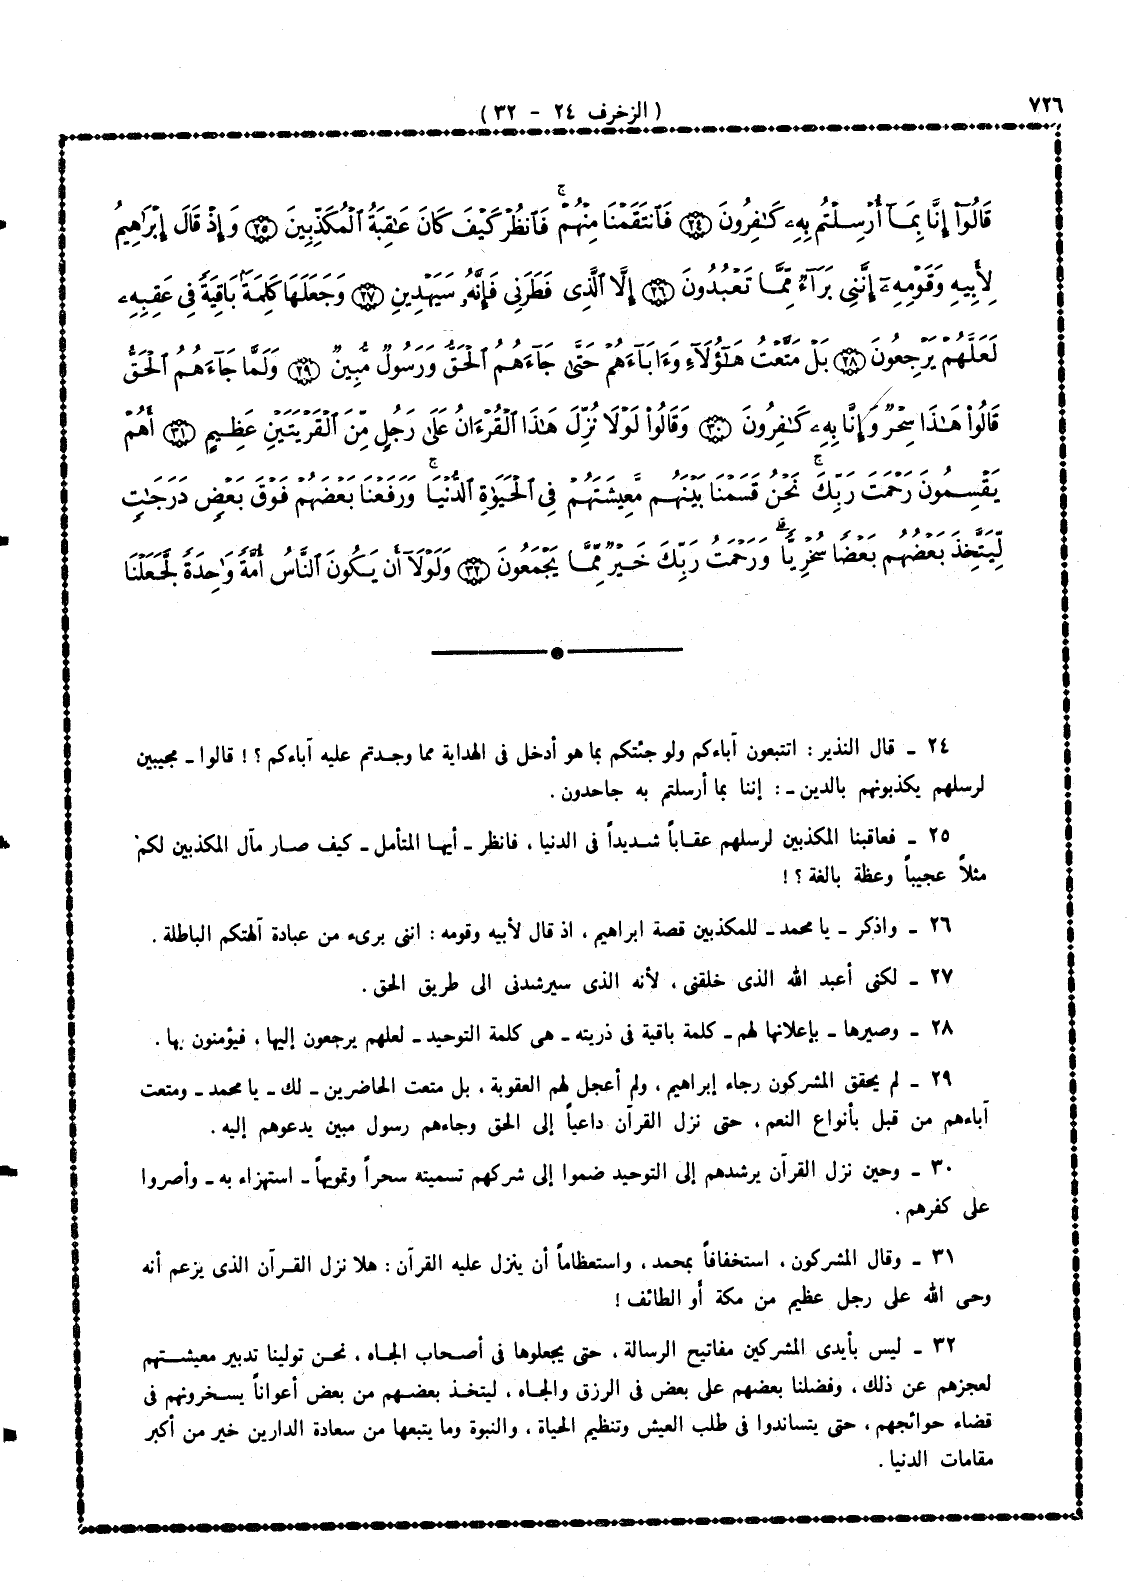 ٧٢٦
( الزخرف ٢٤ - ٣٢ )
قَالُوٓا۟ إِنَّا بِمَآ أُرْسِلْتُم بِهِۦ كَـٰفِرُونَ ۝٢٤ فَٱنتَقَمْنَا مِنْهُمْ ۚ فَٱنظُرْ كَيْفَ كَانَ عَـٰقِبَةُ ٱلْمُكَذِّبِينَ ۝٢٥ وَإِذْ قَالَ إِبْرَٰهِيمُ
لِأَبِيهِ وَقَوْمِهِۦٓ إِنَّنِى بَرَآءٌ مِّمَّا تَعْبُدُونَ ۝٢٦ إِلَّا ٱلَّذِى فَطَرَنِى فَإِنَّهُۥ سَيَهْدِينِ ۝٢٧ وَجَعَلَهَا كَلِمَةًۢ بَاقِيَةً فِى عَقِبِهِۦ
لَعَلَّهُمْ يَرْجِعُونَ ۝٢٨ بَلْ مَتَّعْتُ هَـٰٓؤُلَآءِ وَءَابَآءَهُمْ حَتَّىٰ جَآءَهُمُ ٱلْحَقُّ وَرَسُولٌ مُّبِينٌ ۝٢٩ وَلَمَّا جَآءَهُمُ ٱلْحَقُّ
قَالُوا۟ هَـٰذَا سِحْرٌ وَإِنَّا بِهِۦ كَـٰفِرُونَ ۝٣٠ وَقَالُوا۟ لَوْلَا نُزِّلَ هَـٰذَا ٱلْقُرْءَانُ عَلَىٰ رَجُلٍ مِّنَ ٱلْقَرْيَتَيْنِ عَظِيمٍ ۝٣١ أَهُمْ
يَقْسِمُونَ رَحْمَتَ رَبِّكَ ۚ نَحْنُ قَسَمْنَا بَيْنَهُم مَّعِيشَتَهُمْ فِى ٱلْحَيَوٰةِ ٱلدُّنْيَا ۚ وَرَفَعْنَا بَعْضَهُمْ فَوْقَ بَعْضٍ دَرَجَـٰتٍ
لِّيَتَّخِذَ بَعْضُهُم بَعْضًا سُخْرِيًّا ۗ وَرَحْمَتُ رَبِّكَ خَيْرٌ مِّمَّا يَجْمَعُونَ ۝٣٢ وَلَوْلَآ أَن يَكُونَ ٱلنَّاسُ أُمَّةً وَٰحِدَةً لَّجَعَلْنَا
٢٤ ـ قال النذير : اتتبعون آباءكم ولو جئتكم بما هو أدخل فى الهداية مما وجدتم عليه آباءكم ؟ ! قالوا ـ مجيبين
لرسلهم يكذبونهم بالدين ـ : إننا بما أرسلتم به جاحدون .
٢٥ ـ فعاقبنا المكذبين لرسلهم عقاباً شديداً فى الدنيا ، فانظر ـ أيها المتأمل ـ كيف صار مآل المكذبين لكم
مثلاً عجيباً وعظة بالغة ؟ !
٢٦ ـ واذكر ـ يا محمد ـ للمكذبين قصة ابراهيم ، اذ قال لأبيه وقومه : اننى برىء من عبادة آلهتكم الباطلة .
٢٧ ـ لكنى أعبد الله الذى خلقنى ، لأنه الذى سيرشدنى الى طريق الحق .
٢٨ ـ وصيرها ـ بإعلانها لهم ـ كلمة باقية فى ذريته ـ هى كلمة التوحيد ـ لعلهم يرجعون إليها ، فيؤمنون بها .
٢٩ ـ لم يحقق المشركون رجاء إبراهيم ، ولم أعجل لهم العقوبة ، بل متعت الحاضرين ـ لك ـ يا محمد ـ ومتعت
آباءهم من قبل بأنواع النعم ، حتى نزل القرآن داعياً إلى الحق وجاءهم رسول مبين يدعوهم إليه .
٣٠ ـ وحين نزل القرآن يرشدهم إلى التوحيد ضموا إلى شركهم تسميته سحراً وتمويهاً ـ استهزاء به ـ وأصروا
على كفرهم .
٣١ ـ وقال المشركون ، استخفافاً بمحمد ، واستعظاماً أن ينزل عليه القرآن : هلا نزل القرآن الذى يزعم أنه
وحى الله على رجل عظيم من مكة أو الطائف !
٣٢ ـ ليس بأيدى المشركين مفاتيح الرسالة ، حتى يجعلوها فى أصحاب الجاه ، نحن تولينا تدبير معيشتهم
لعجزهم عن ذلك ، وفضلنا بعضهم على بعض فى الرزق والجاه ، ليتخذ بعضهم من بعض أعواناً يسخرونهم فى
قضاء حوائجهم ، حتى يتساندوا فى طلب العيش وتنظيم الحياة ، والنبوة وما يتبعها من سعادة الدارين خير من أكبر
مقامات الدنيا .